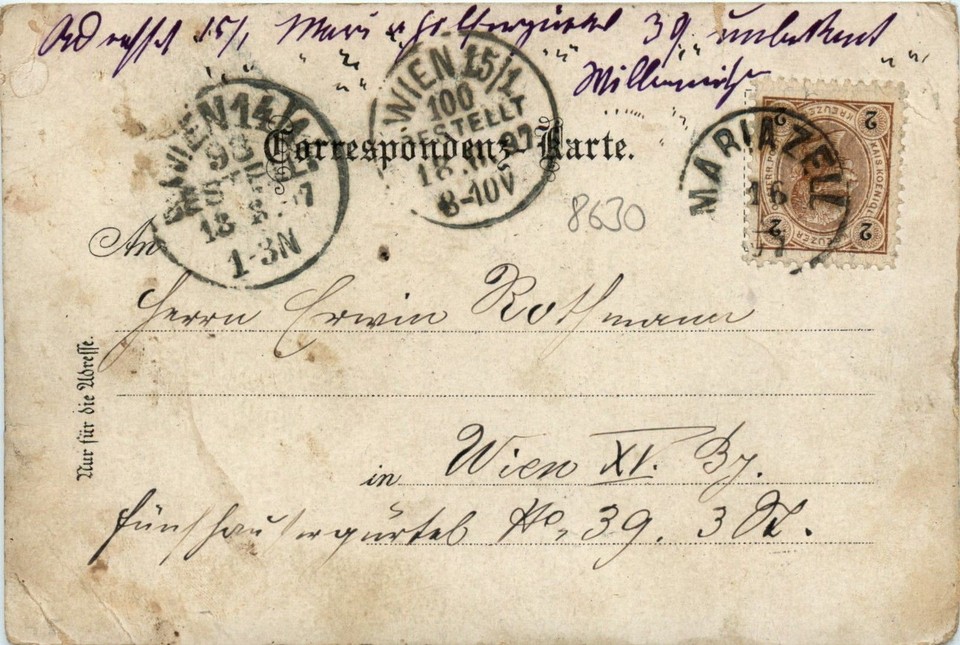 Adresse 15/1 Mariahilfergürtel 39 unbekannt
WIEN 14
98
18
7
1-3N
WIEN 15/1
100
BESTELLT
18 97
8-10V
Correspondenz-Karte.
MARIAZELL
16
2 KREUZER 2
KAIS. KOENIGL.
8630
An
Herrn Erwin Rothmann
Nur für die Adresse.
in Wien XV. Bz.
Fünfhausergürtel No. 39. 3 St.